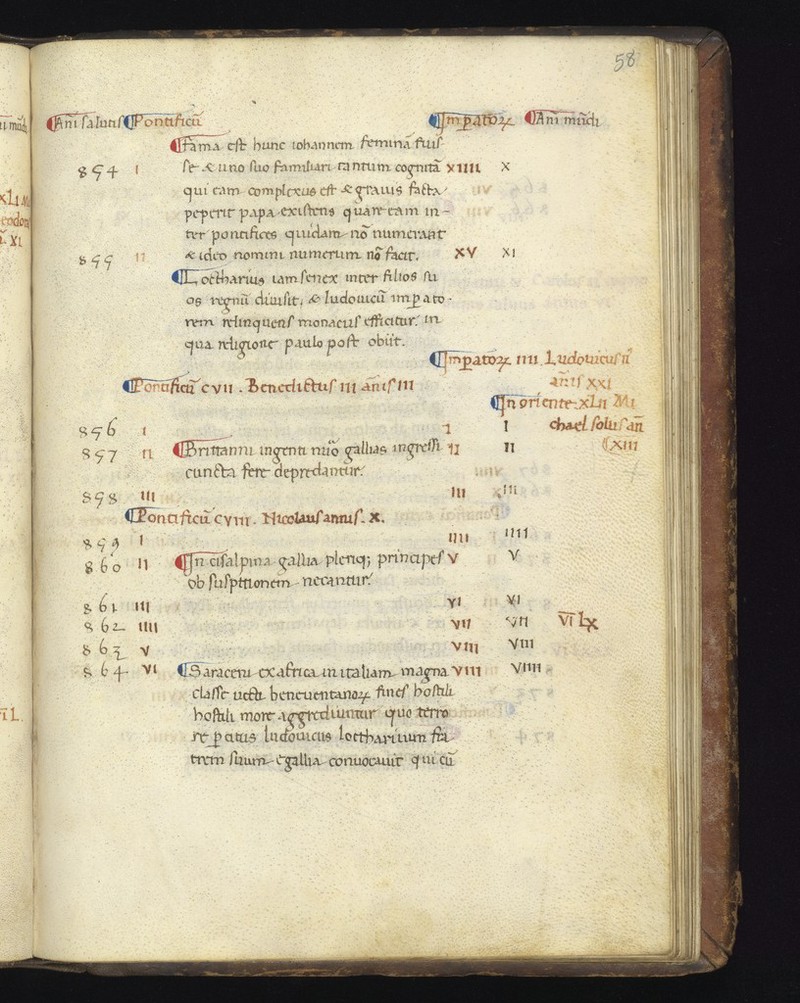 58
Añi salutis Pontificū Imp̱atoꝝ Añi mūdi
Fama est hunc iohannem feminā fuis
854 I se & uno suo familiari tantum cognitā XIIII X
qui eam complexus est & grauis facta
peperit papa existens quare eam in-
ter pontifices quidam nō numerant
855 II & ideo nomini numerum nō facit. XV XI
Loctharius iam senex inter filios su
os regnū diuisit, & ludouicū imp̱ato-
rem relinquens monacus efficitur. in
qua religione paulo post obiit.
Imp̱atoꝝ IIII. Ludouicus II
Pontificū CVII. Benedictus III anīs III
anīs XXI
In oriente XLII Mi
856 I I I chael solus an
857 II Brittanni ingenti nūo gallias ingressi II II XIII
cuncta fere depredantur.
858 III III III
Pontificū CVIII. Nicolaus annis. X.
859 I IIII IIII
860 II In cisalpina gallia pleriq; principes V V
ob susptionem necantur.
861 III VI VI
862 IIII VII VII VI LX
863 V VIII VIII
864 VI Saraceni ex africa in italiam magna VIIII VIIII
classe uecti beneuentanoꝝ fines hostili
hostili more aggrediuntur quo terro
re p̱citus ludouicus loctharium fra
trem suum egallia conuocauit qui cū